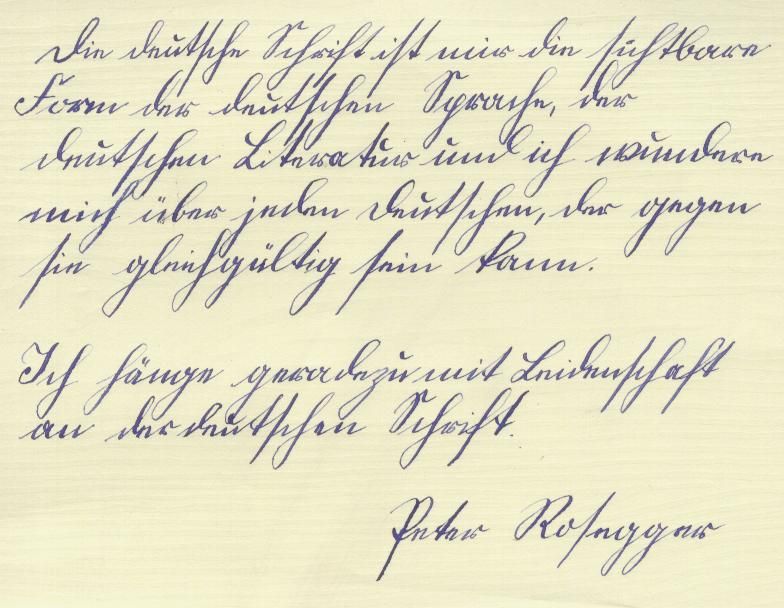 Die deutsche Schrift ist mir die sichtbare
Form der deutschen Sprache, der
deutschen Literatur und ich wundere
mich über jeden Deutschen, der gegen
sie gleichgültig sein kann.
Ich hänge geradezu mit Leidenschaft
an der deutschen Schrift.
Peter Rosegger